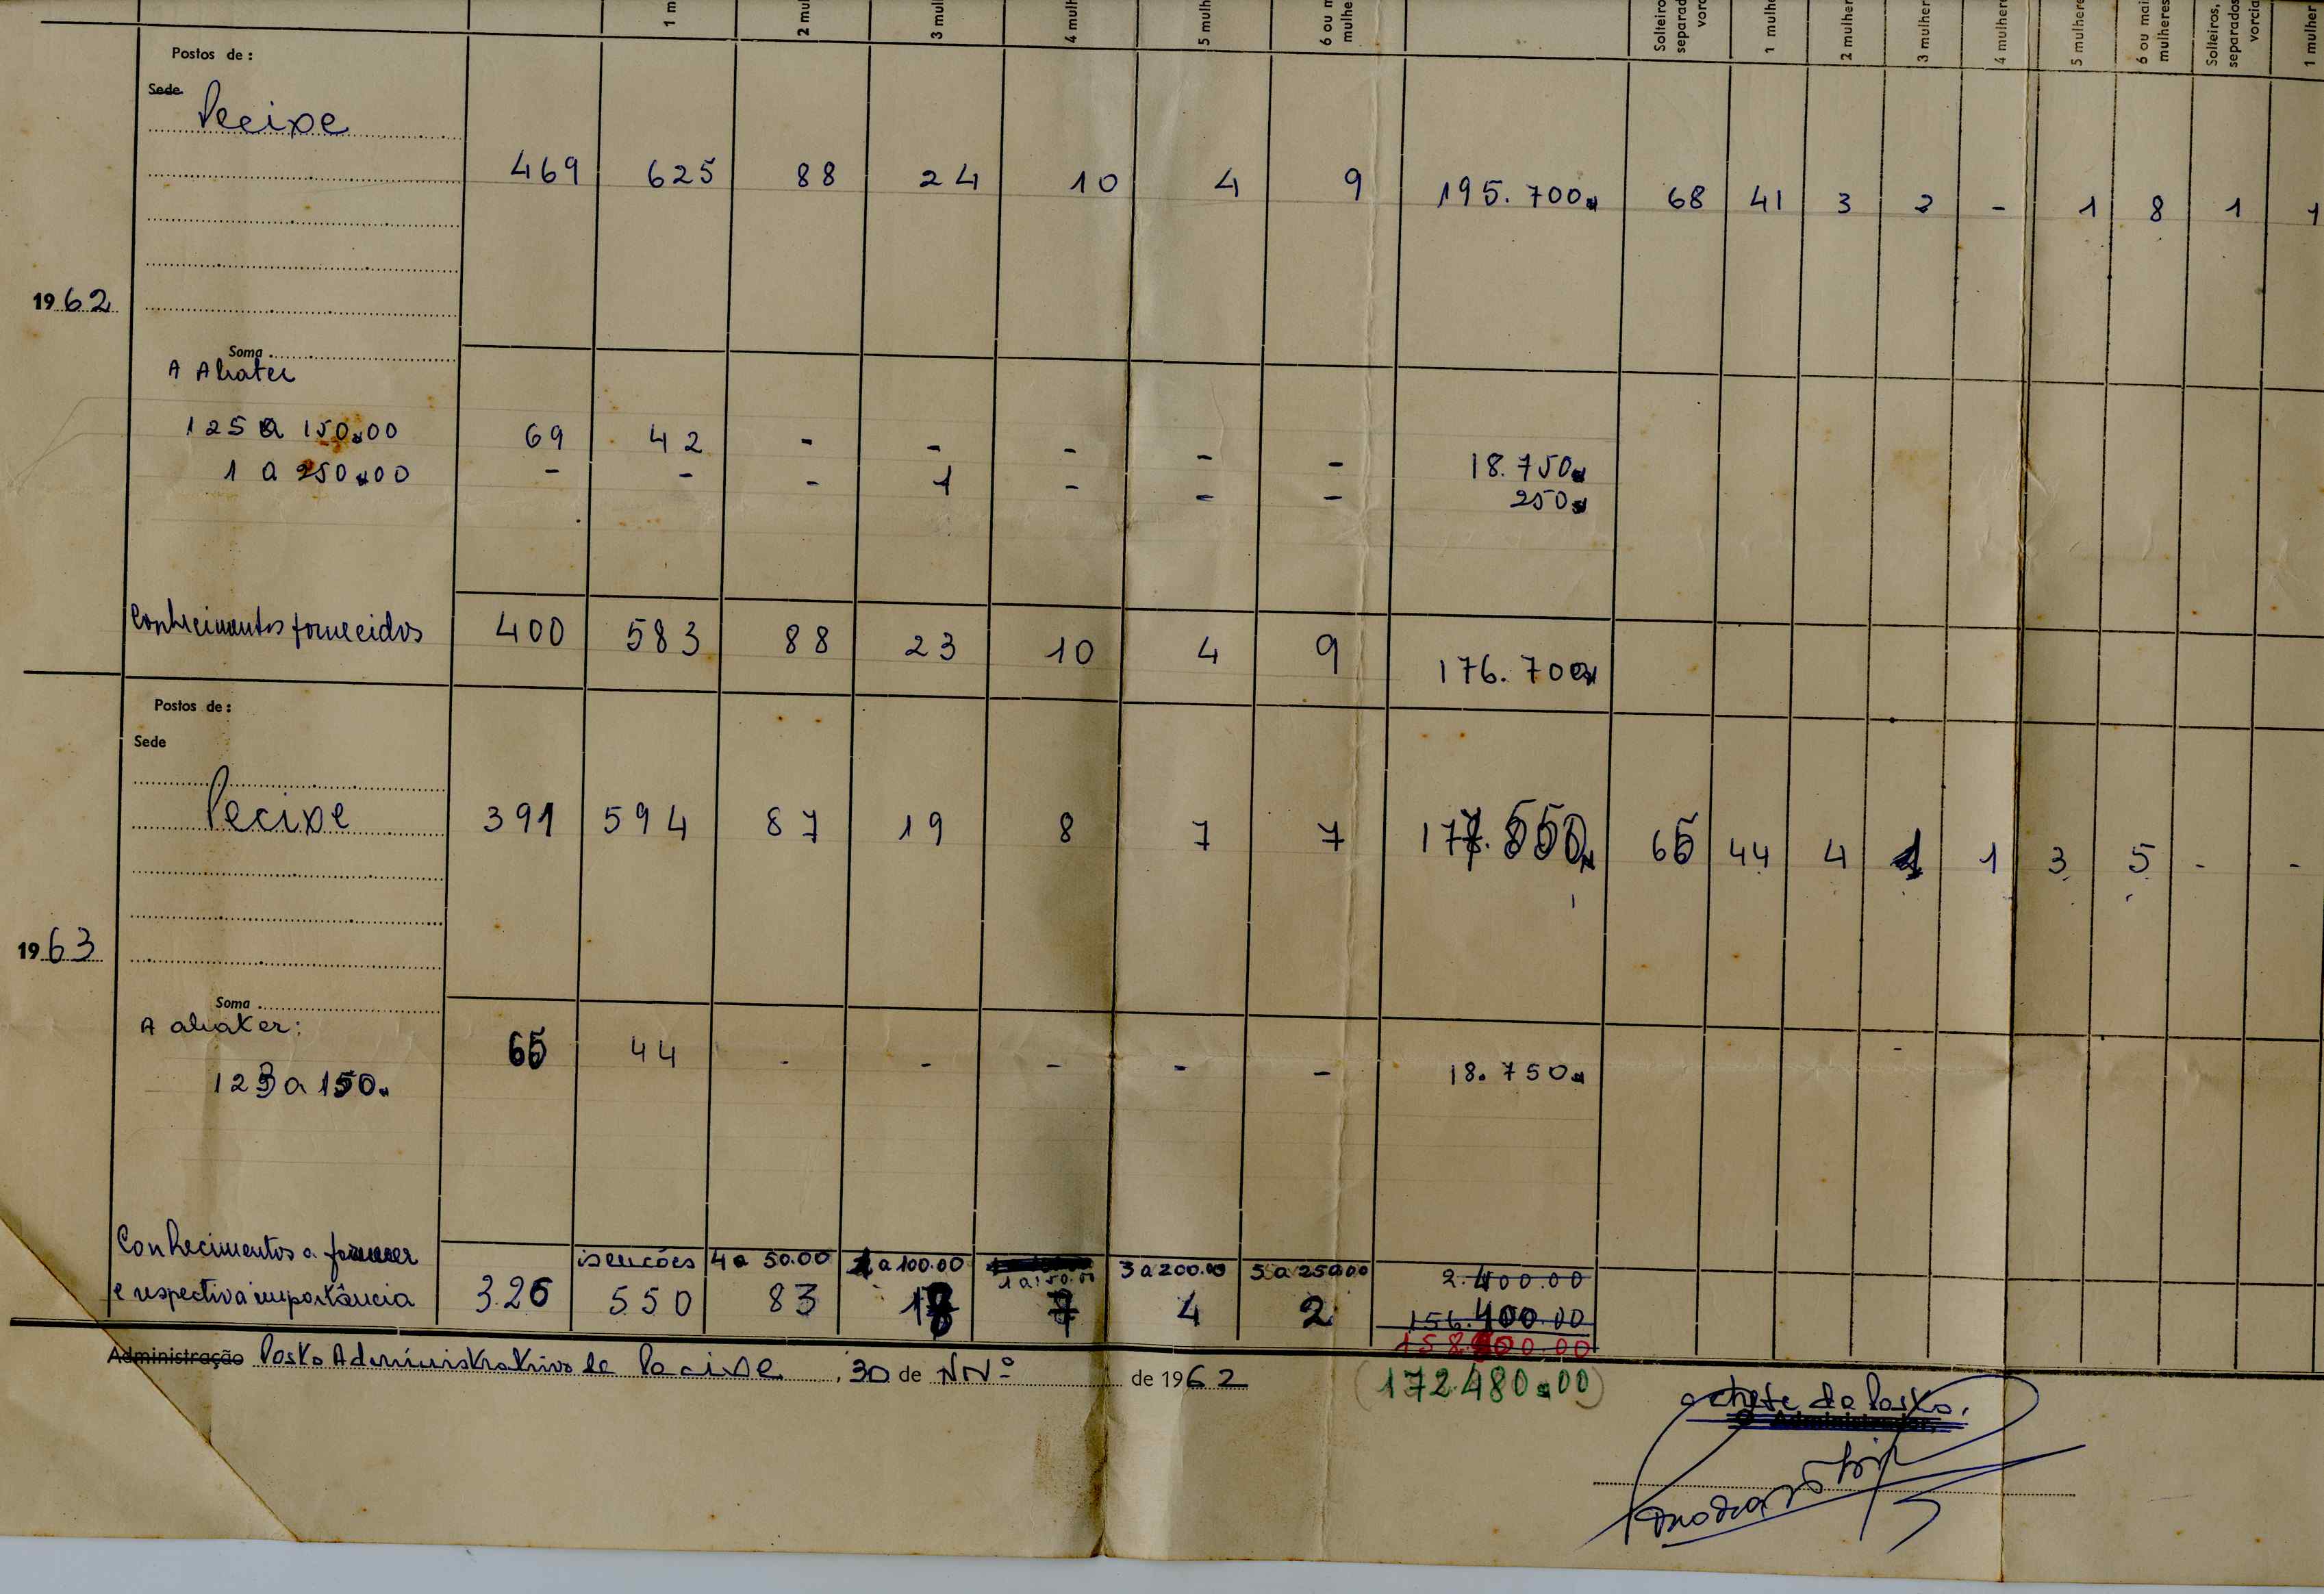 1 m
2 mul
3 mul
4 mulh
5 mulh
6 ou m
mulhe
Solteiro
separad
vorc
1 mulhe
2 mulher
3 mulher
4 mulhere
5 mulhere
6 ou mai
mulheres
Solteiros,
separados
vorcia
1 mulher
Postos de :
Sede
Pecixe
469 625 88 24 10 4 9 195.700$ 68 41 3 2 - 1 8 1 1
1962
Soma
A Abater
125 a 150$00 69 42 - - - - - 18.750$
1 a 250$00 - - - 1 - - - 250$
Conhecimentos fornecidos 400 583 88 23 10 4 9 176.700$
Postos de :
Sede
Pecixe 391 594 87 19 8 7 7 65 44 4 1 1 3 5 - -
1963
Soma
A abater: 65 44 - - - - - 18.750$
a 150$
Conhecimentos a fornecer isenções 4 a 50.00 1 a 100.00 1 a 150.00 3 a 200.00 5 a 250.00 2.400.00
e respectiva importância 326 550 83 18 7 4 2 156.400.00
Administração Posto Administrativo de Pecixe, 30 de NNº de 1962 (172.480$00)
o chefe do Posto,
O Administrador,